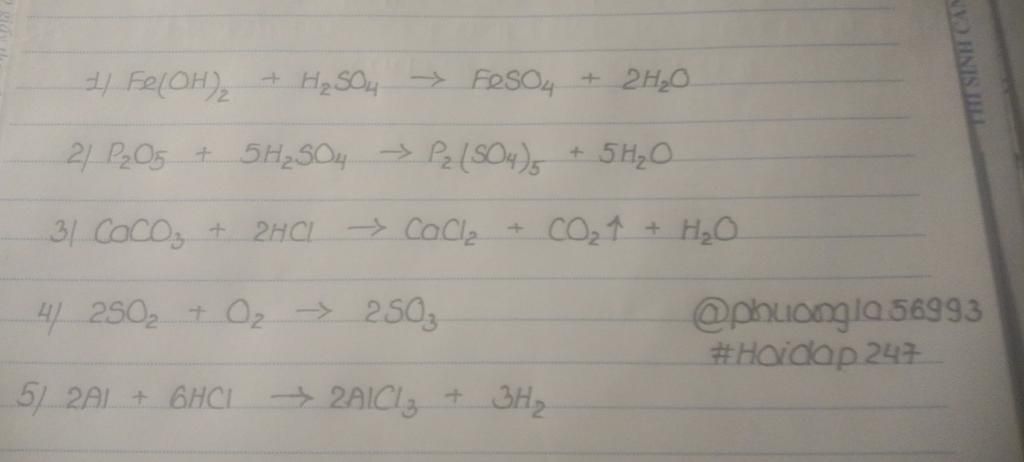 1) Fe(OH)₂ + H₂SO₄ → FeSO₄ + 2H₂O
2) P₂O₅ + 5H₂SO₄ → P₂(SO₄)₅ + 5H₂O
3) CaCO₃ + 2HCl → CaCl₂ + CO₂↑ + H₂O
4) 2SO₂ + O₂ → 2SO₃
@phuongla56993
#Hoidap247
5) 2Al + 6HCl → 2AlCl₃ + 3H₂
THI SINH CAN